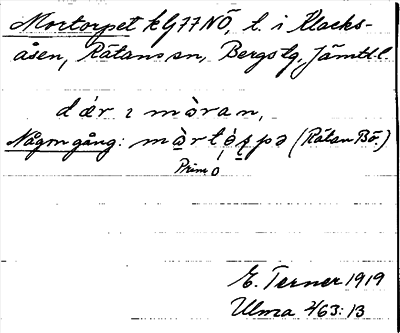 Mortorpet kG77NÖ, l. i Klacks-
åsen, Rätans sn, Bergs tg, Jämtl.l.
dǽr ı mòran,
Någon gång: mo̠rtórpə (Rätan Bö.)
Prim o
E. Terner 1919
Ulma 263:13